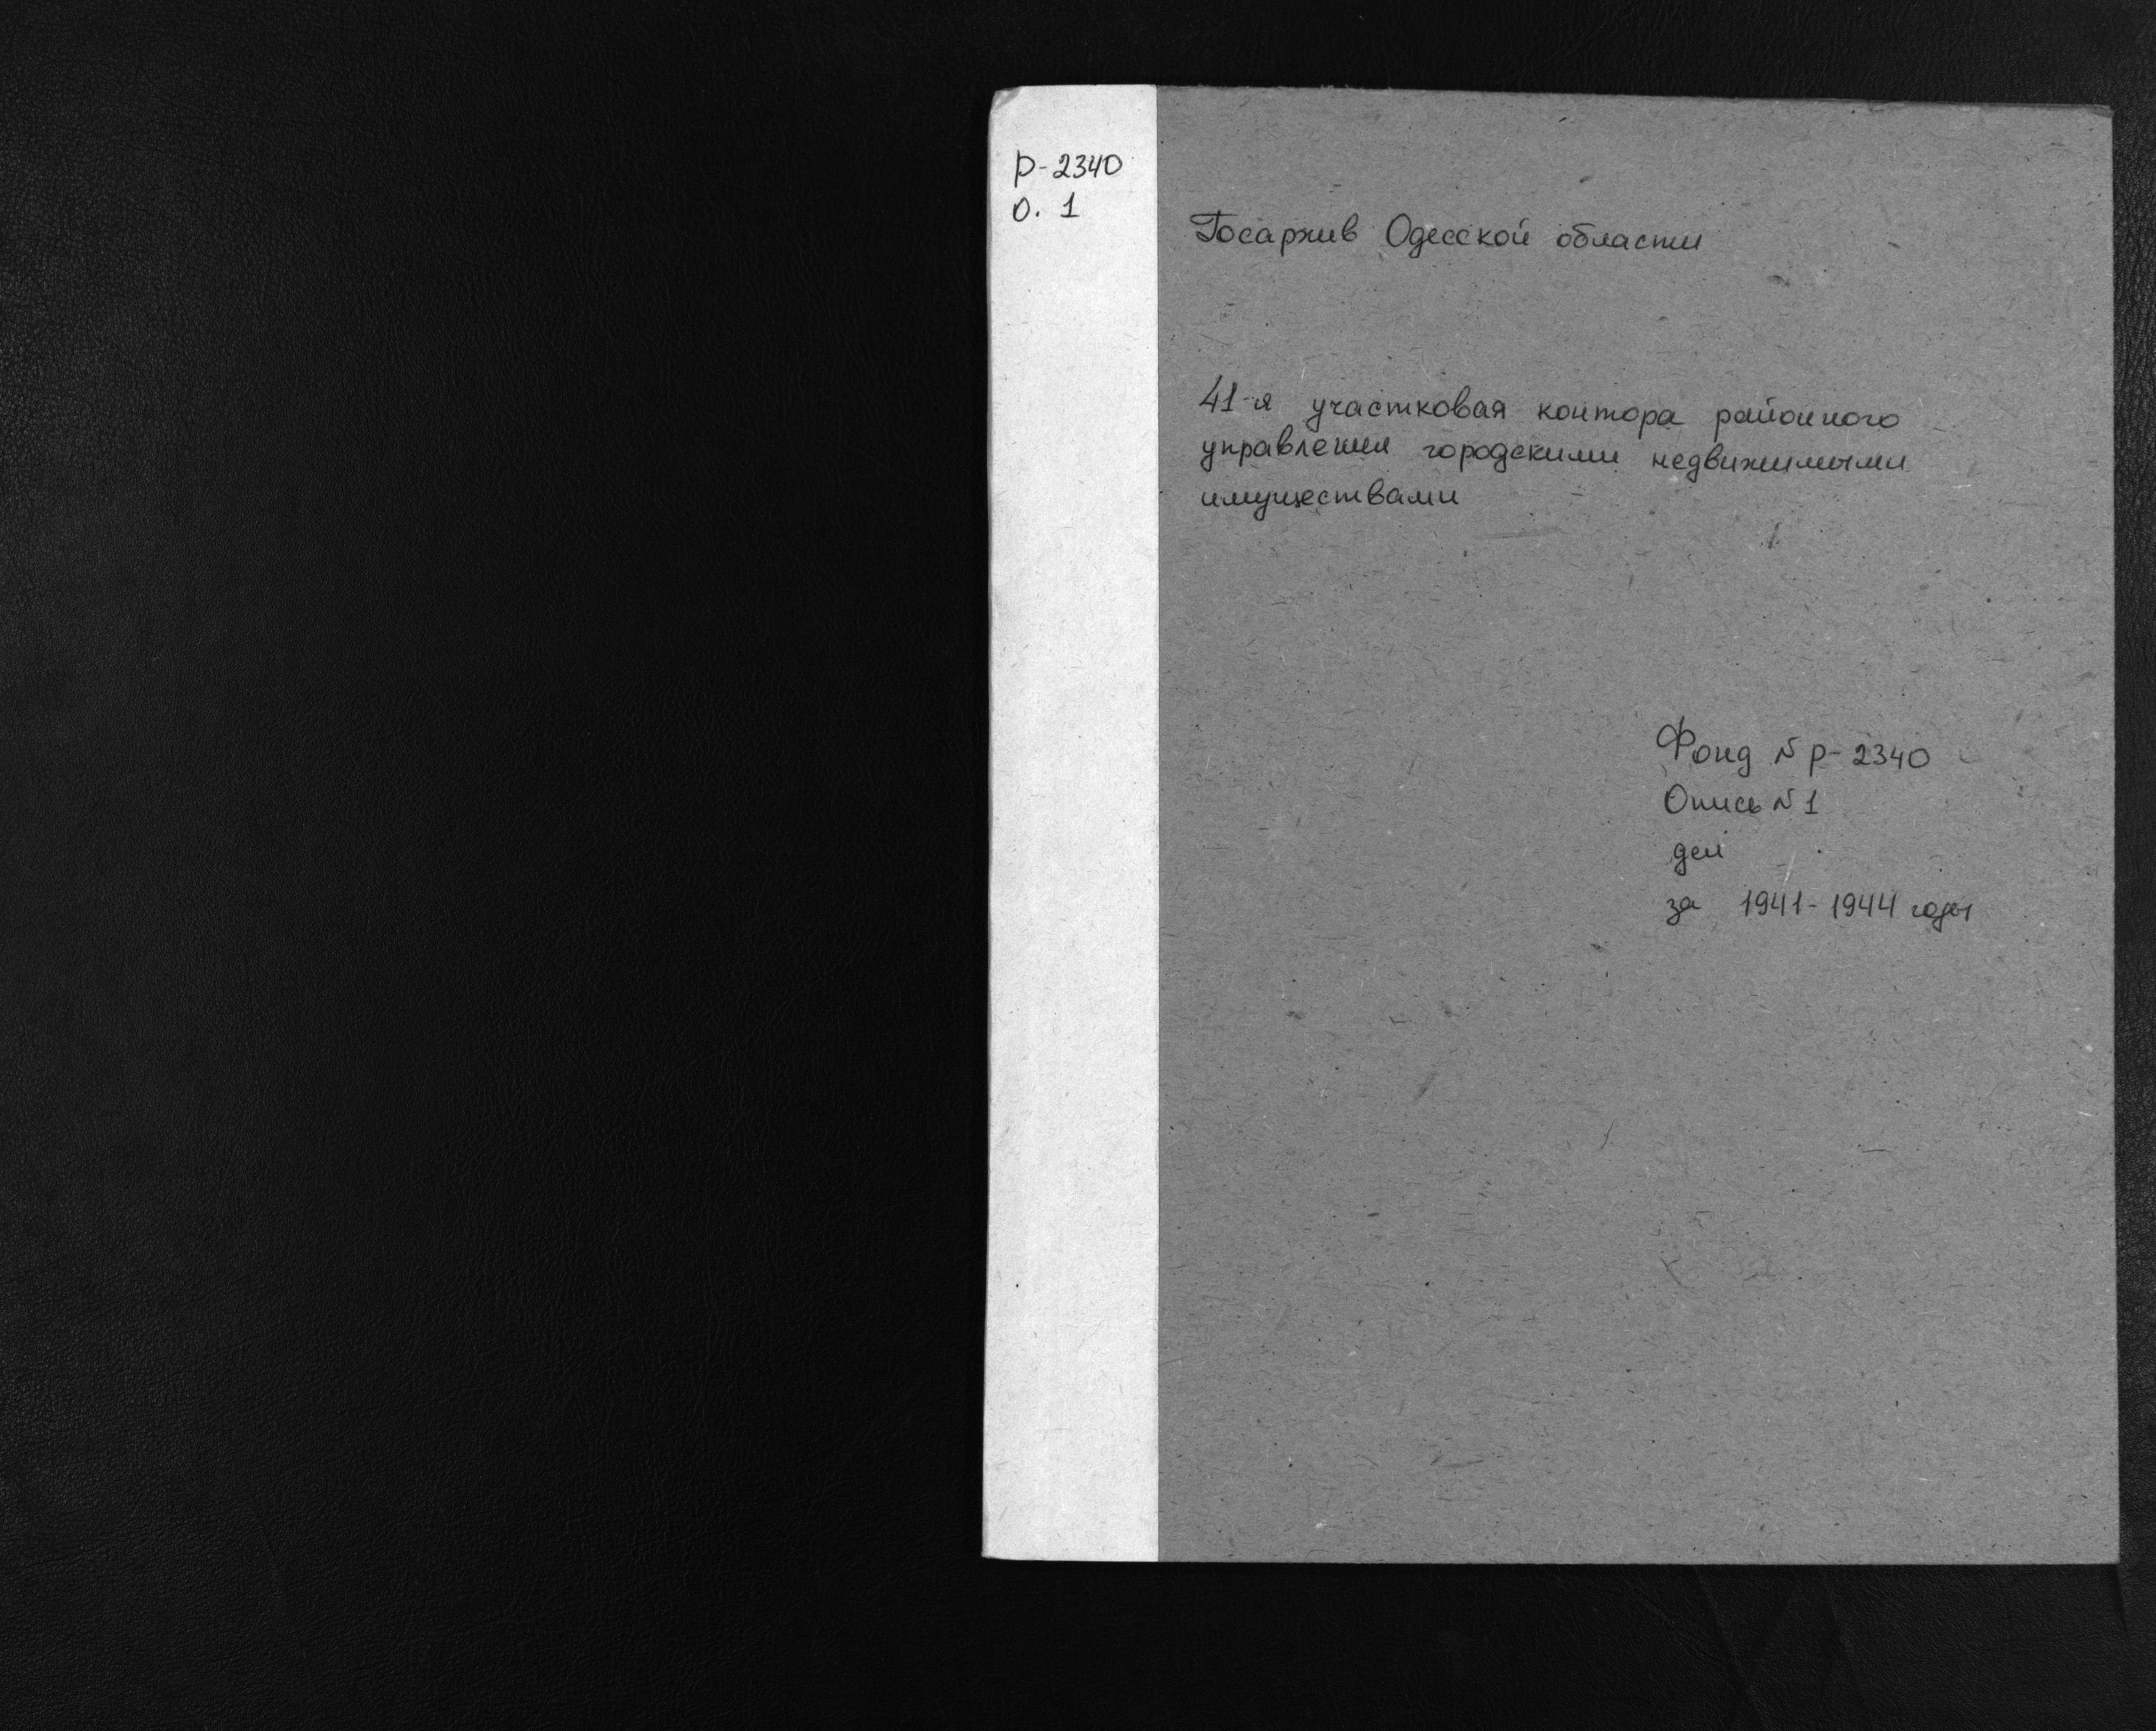 Р-2340
о. 1
Госархив Одесской области
41-я участковая контора районного
управления городскими недвижимыми
имуществами
Фонд № Р-2340
Опись № 1
дел
за 1941-1944 годы